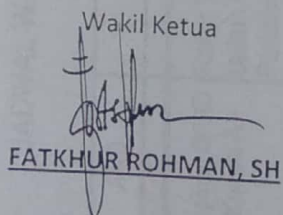 Wakil Ketua
FATKHUR ROHMAN, SH